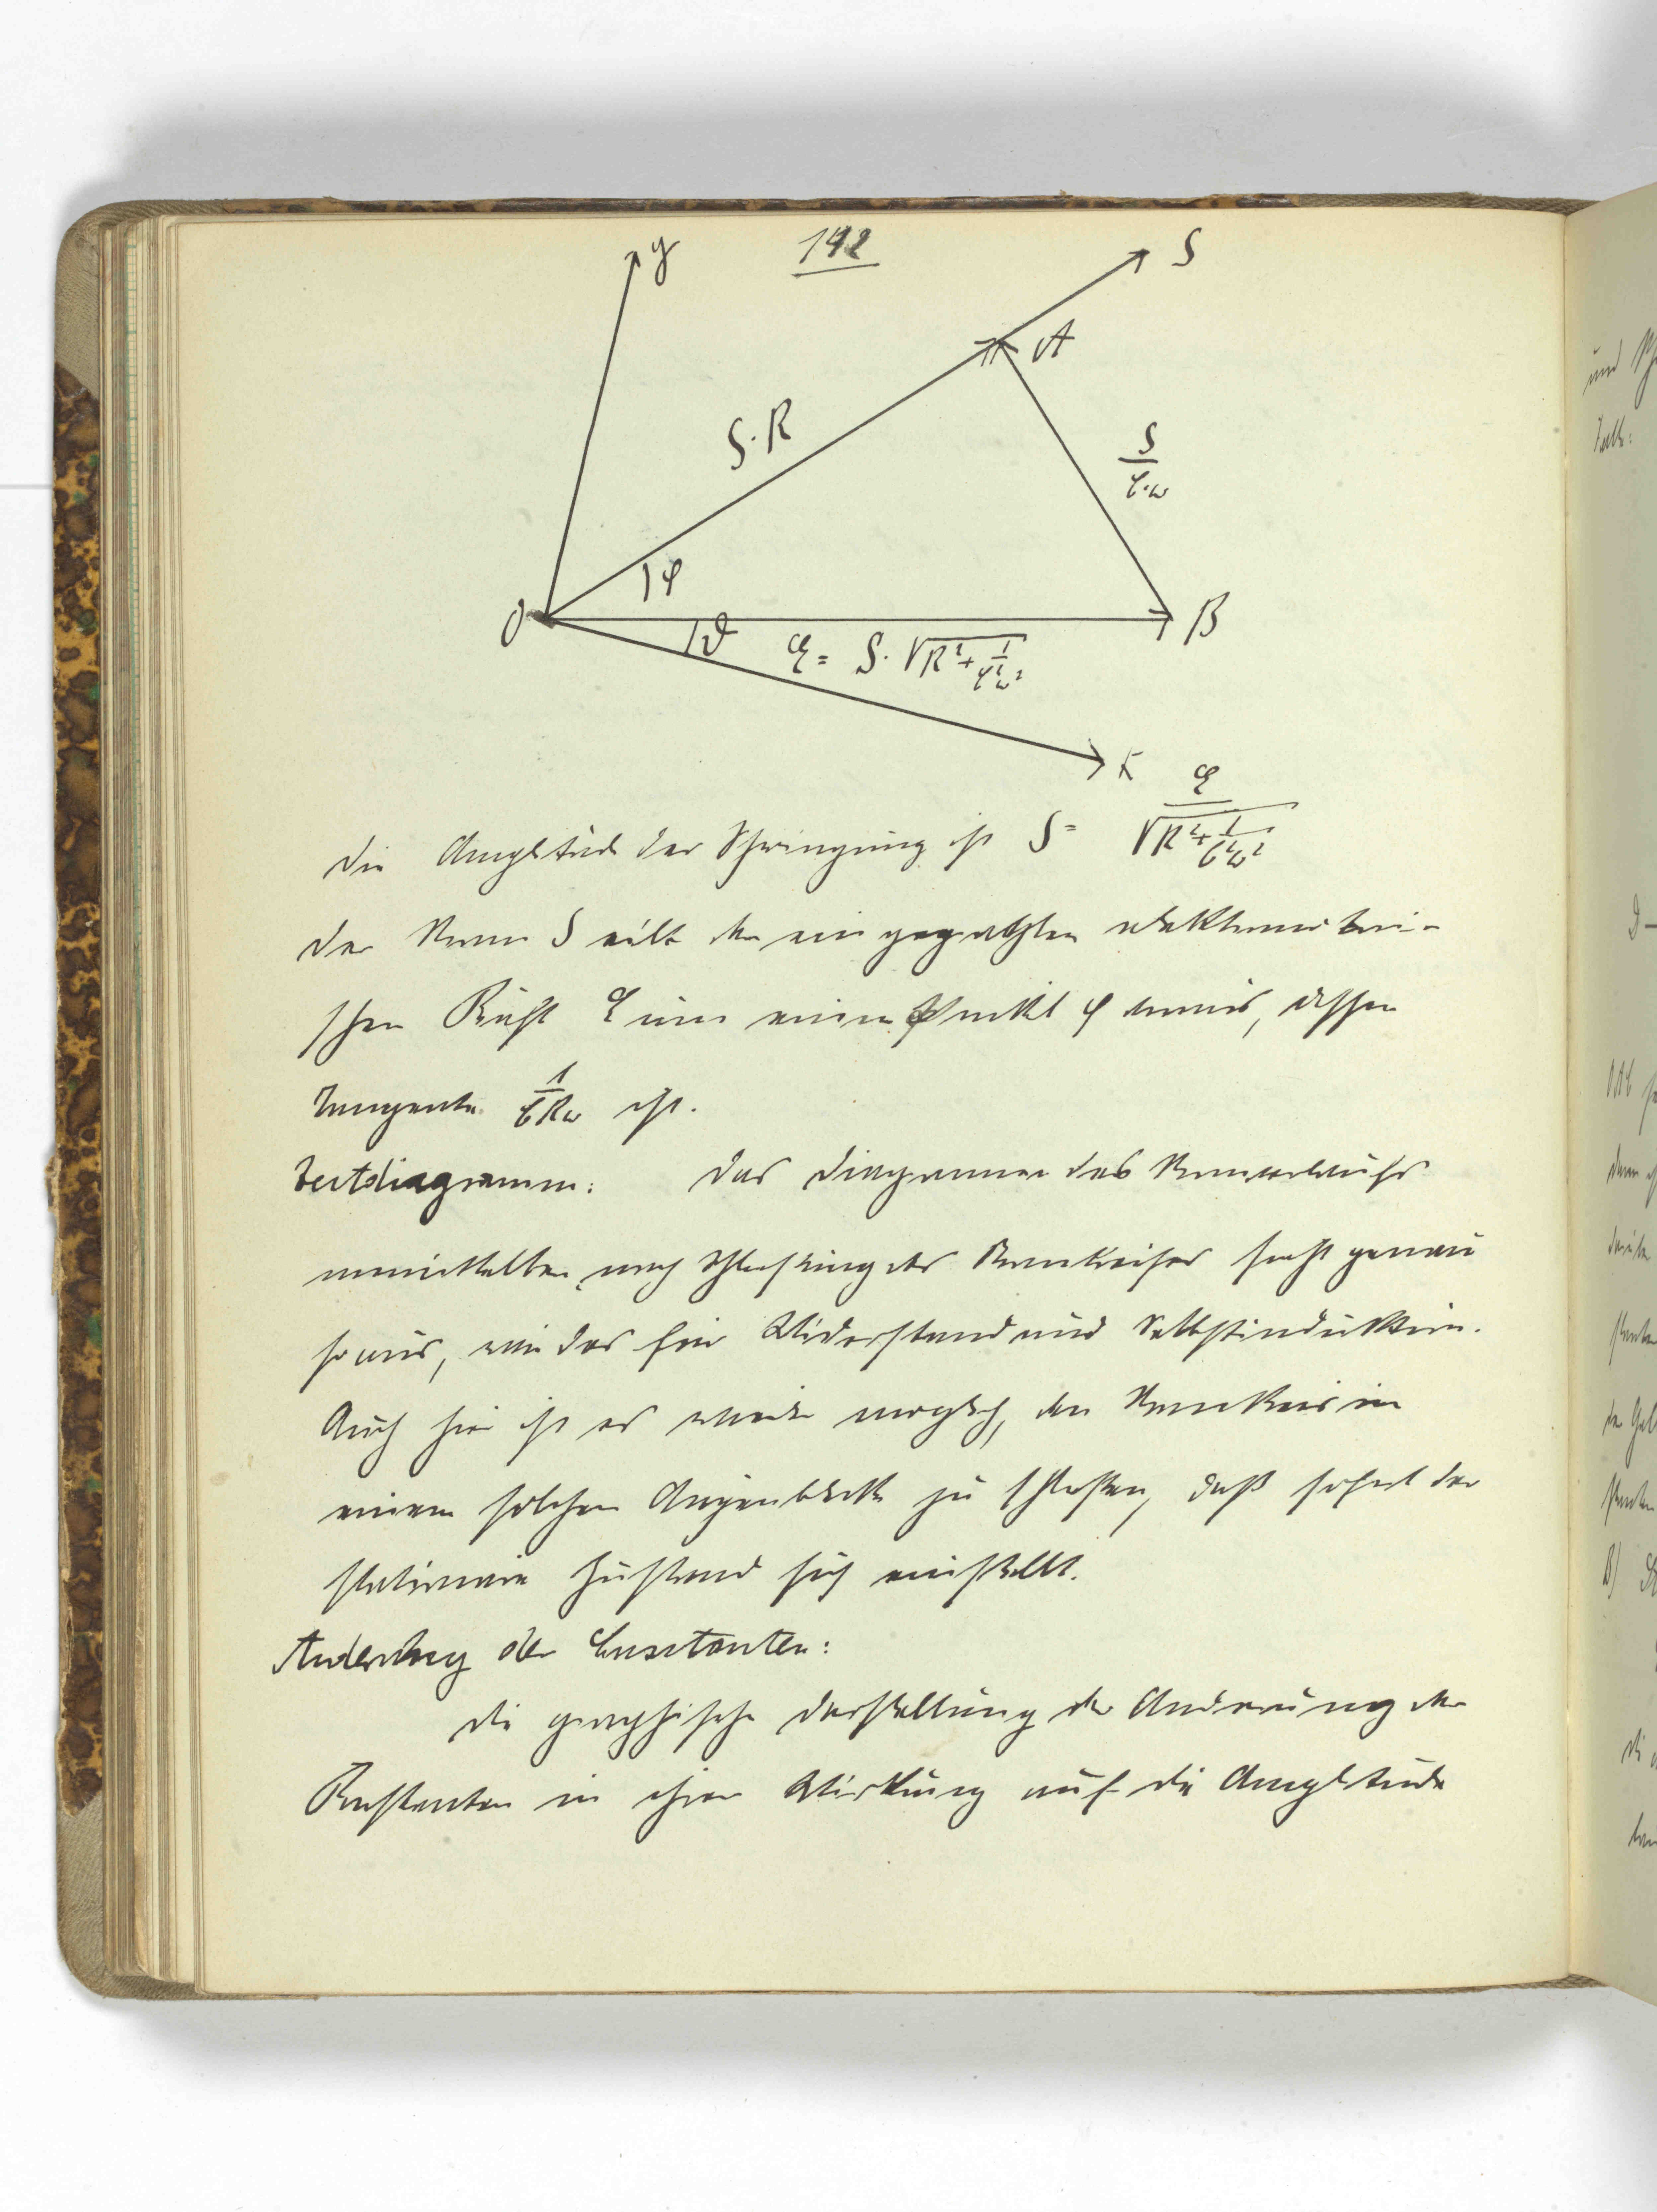 142
y
S
A
S·R
S/(C·ω)
φ
O
B
ϑ
E = S·√(R²+1/(C²ω²))
K
Die Amplitude der Schwingung ist S = E/√(R²+1/(C²ω²))
Der Strom S eilt der eingeprägten elektromotori-
schen Kraft E um einen Winkel φ voraus, dessen
Tangente 1/(CRω) ist.
Zeitdiagramm: Das Diagramm des Stromverlaufs
unmittelbar nach Schließung des Stromkreises sieht genau
so aus, wie das für Widerstand und Selbstinduktion.
Auch hier ist es wieder möglich, den Stromkreis in
einem solchen Augenblick zu schließen, daß sofort der
stationäre Zustand sich einstellt.
Änderung der Constanten:
Die graphische Darstellung der Änderung der
Konstanten in ihrer Wirkung auf die Amplitude
und
D